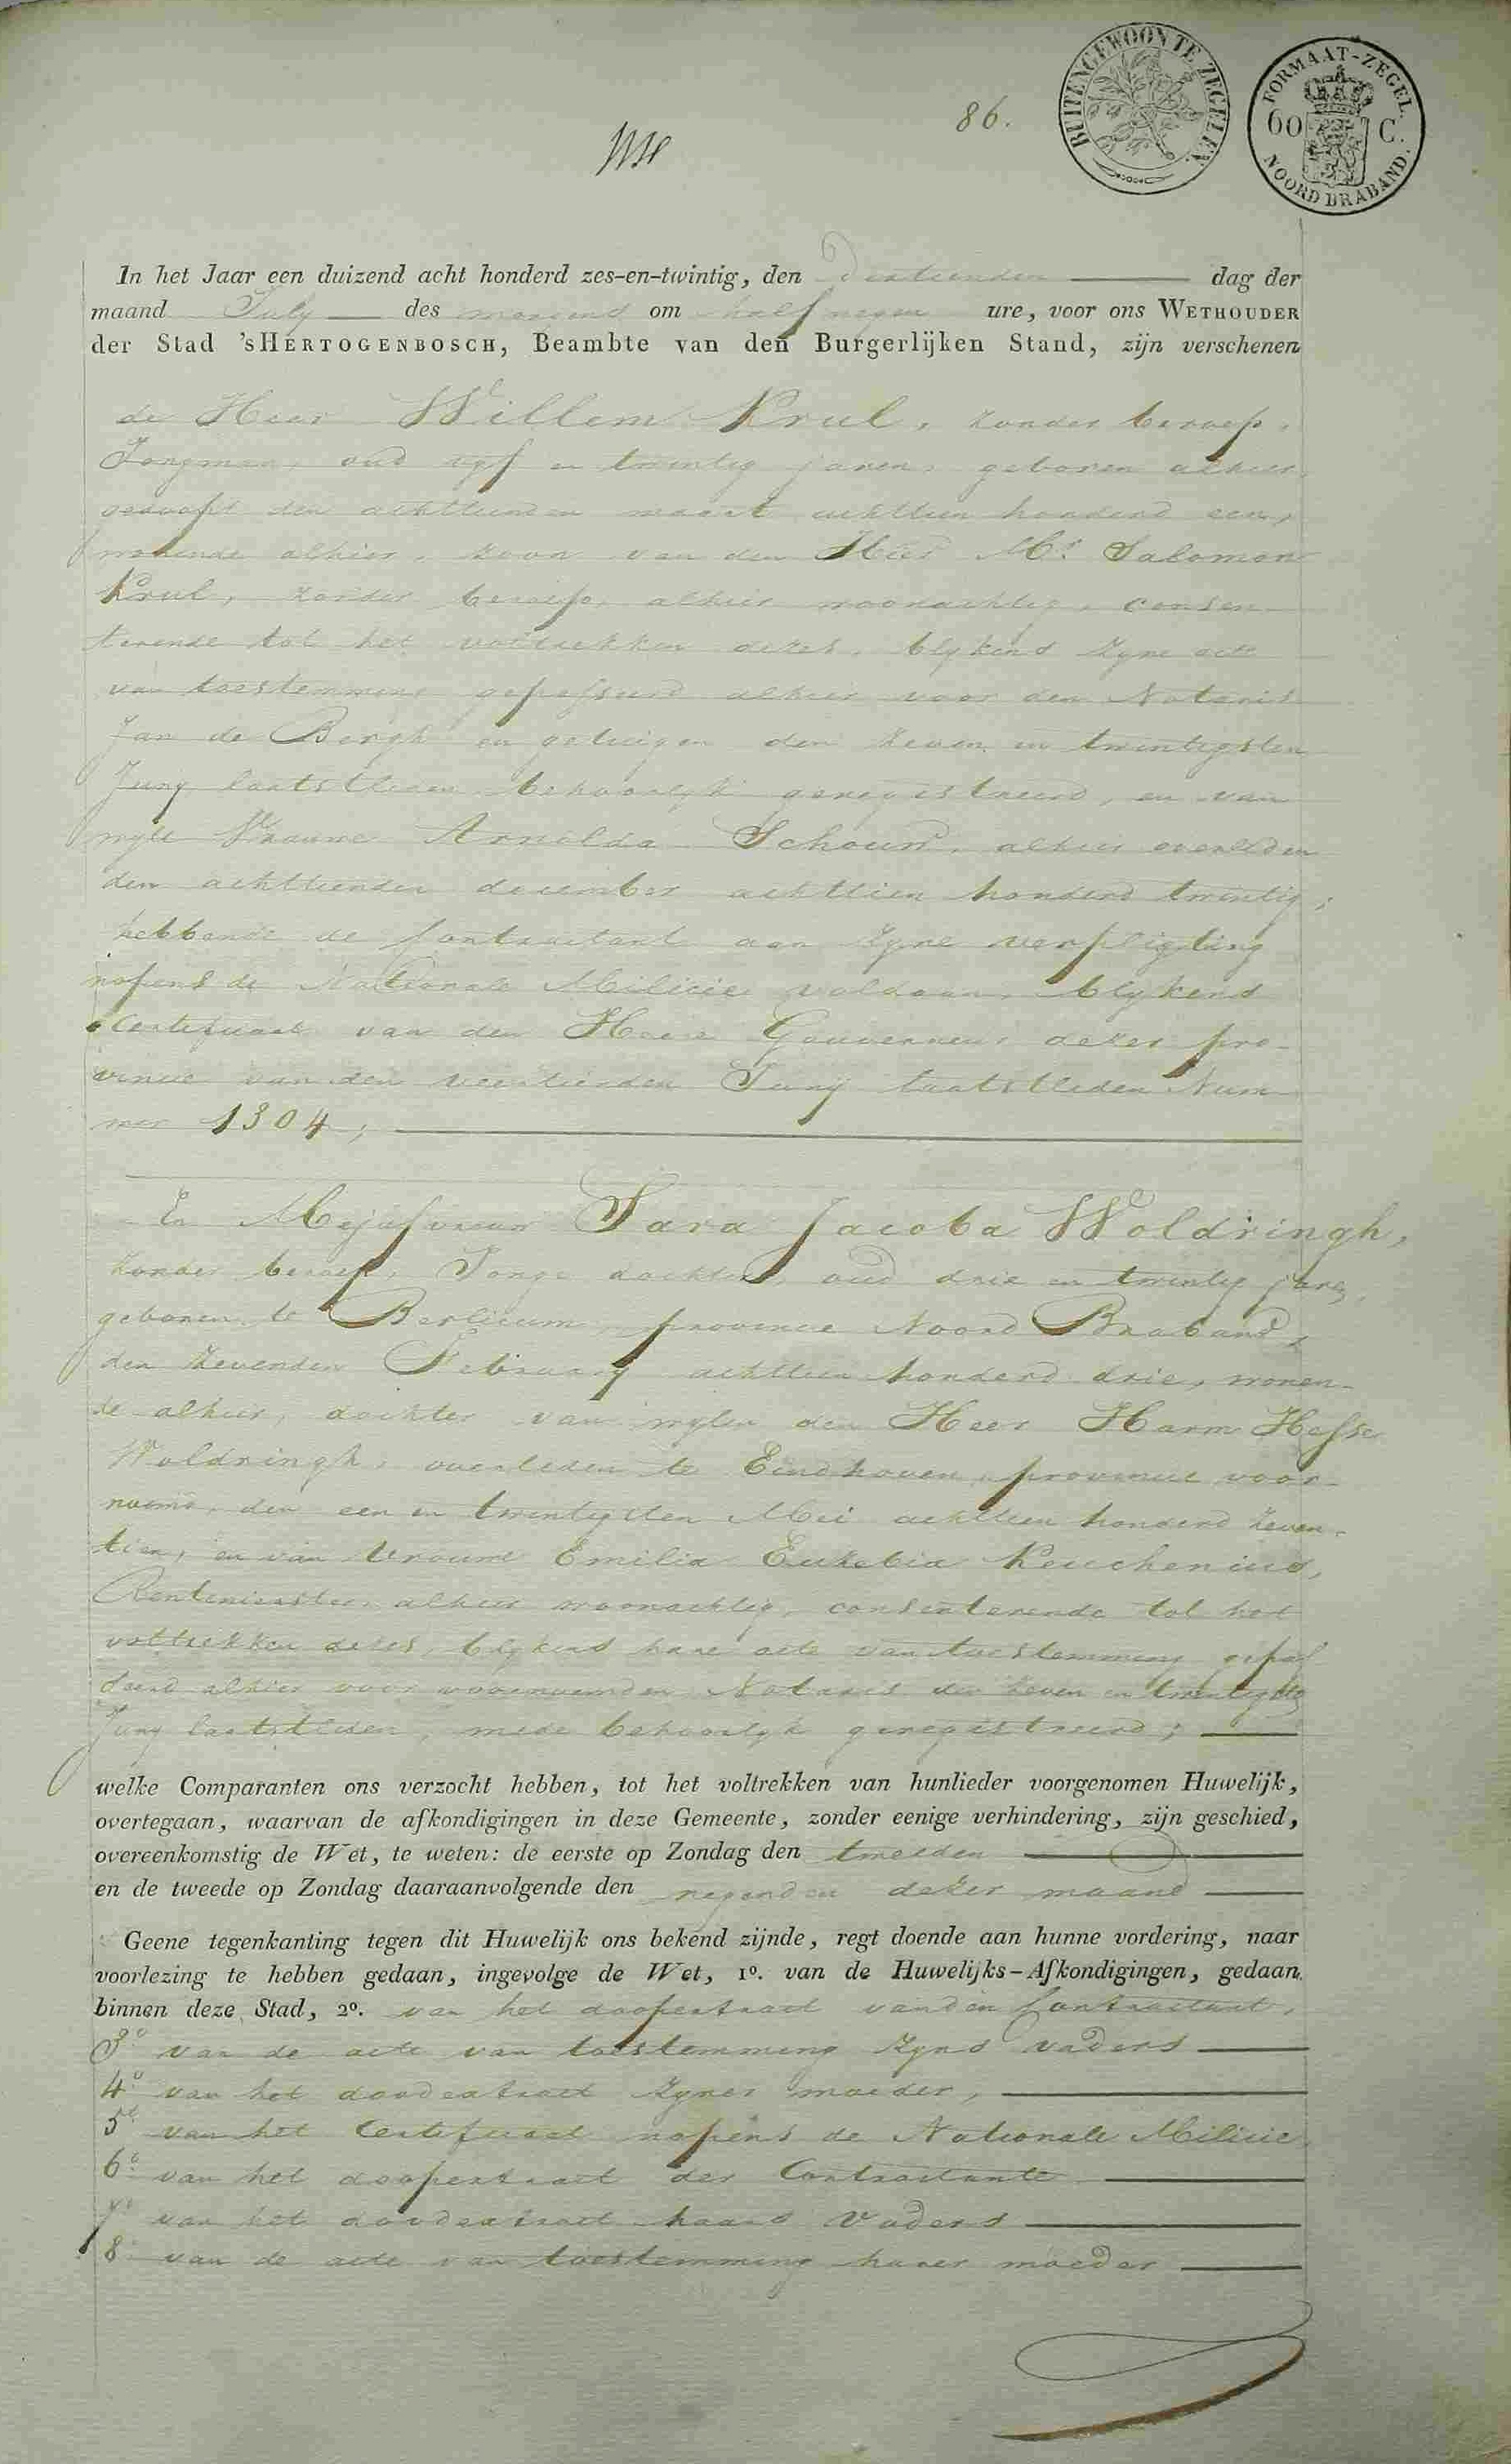 86.
BUITENGEWOONTE ZEGELEN.
FORMAAT-ZEGEL.
60 C.
NOORD BRABAND.
In het Jaar een duizend acht honderd zes-en-twintig, den dertienden dag der
maand July des morgens om half negen ure, voor ons WETHOUDER
der Stad 'sHERTOGENBOSCH, Beambte van den Burgerlijken Stand, zijn verschenen
de Heer Willem Krul, zonder beroep,
Jongman, oud vyf en twintig jaren, geboren alhier,
gedoopt den achttienden maart achttien honderd een,
wonende alhier, zoon van den Heer Mr. Salomon
Krul, zonder beroep, alhier woonachtig, consen-
terende tot het voltrekken dezes, blykens zyne acte
van toestemming gepasseerd alhier voor den Notaris
Jan de Bergh en getuigen den zeven en twintigsten
Juny laatstleden behoorlyk geregistreerd, en van
wyle Vrouwe Arnolda Schouw, alhier overleden
den achttienden december achttien honderd twintig;
hebbende de Contractant aan zyne verpligting
nopens de Nationale Militie voldaan, blykens
Certificaat van den Heere Gouverneur dezer pro-
vincie van den veertienden Juny laatstleden Num-
mer 1304;
En Mejufvrouw Sara Jacoba Woldringh,
zonder beroep, Jonge dochter, oud drie en twintig jaren,
geboren te Berlicum, provincie Noord Braband,
den zevenden February achttien honderd drie, wonen-
de alhier, dochter van wylen den Heer Harm Hesse
Woldringh, overleden te Eindhoven, provincie voor-
noemd, den een en twintigsten Mei achttien honderd zeven-
tien, en van Vrouwe Emilia Euzebia Keuchenius,
Rentenierster, alhier woonachtig, consenterende tot het
voltrekken dezes, blykens hare acte van toestemming gepas-
seerd alhier voor voornoemden Notaris den zeven en twintigsten
Juny laatstleden, mede behoorlyk geregistreerd;
welke Comparanten ons verzocht hebben, tot het voltrekken van hunlieder voorgenomen Huwelijk,
overtegaan, waarvan de afkondigingen in deze Gemeente, zonder eenige verhindering, zijn geschied,
overeenkomstig de Wet, te weten: de eerste op Zondag den tweeden
en de tweede op Zondag daaraanvolgende den negenden dezer maand
Geene tegenkanting tegen dit Huwelijk ons bekend zijnde, regt doende aan hunne vordering, naar
voorlezing te hebben gedaan, ingevolge de Wet, 1º. van de Huwelijks-Afkondigingen, gedaan
binnen deze Stad, 2º. van het doopextract van den Contractant,
3º van de acte van toestemming zyns vaders
4º van het doodextract zyner moeder,
5º van het Certificaat nopens de Nationale Militie,
6º van het doopextract der Contractante
7º van het doodextract haars Vaders
8º van de acte van toestemming harer moeder